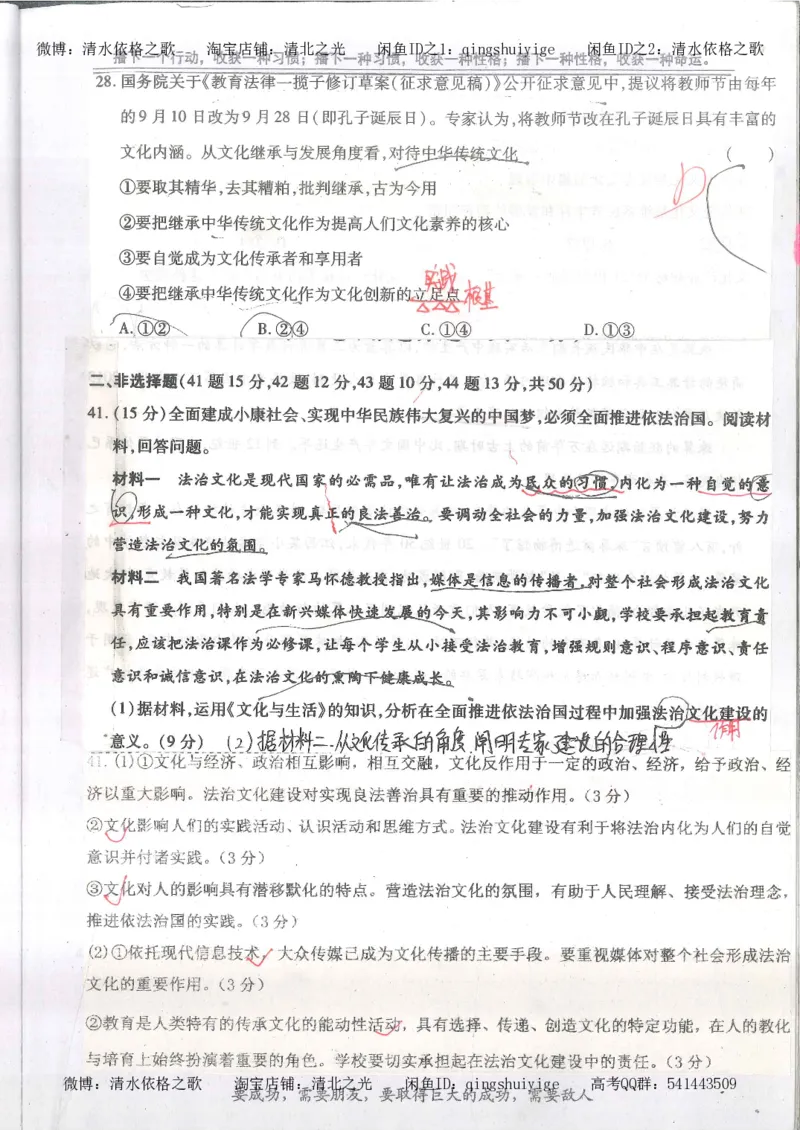 微博：清水依格之歌 淘宝店铺：清北之光 闲鱼ID之1：qingshuiyige 闲鱼ID之2：清水依格之歌
播下一个行动，收获一种习惯；播下一种习惯，收获一种性格；播下一种性格，收获一种命运。
28.国务院关于《教育法律一揽子修订草案(征求意见稿)》公开征求意见中,提议将教师节由每年
的9月10日改为9月28日(即孔子诞辰日)。专家认为,将教师节改在孔子诞辰日具有丰富的
文化内涵。从文化继承与发展角度看,对待中华传统文化 ( )
D
①要取其精华,去其糟粕,批判继承,古为今用
②要把继承中华传统文化作为提高人们文化素养的核心
③要自觉成为文化传承者和享用者
④要把继承中华传统文化作为文化创新的立足点 根基
A.①② B.②④ C.①④ D.①③
二、非选择题(41题15分,42题12分,43题10分,44题13分,共50分)
41.(15分)全面建成小康社会、实现中华民族伟大复兴的中国梦,必须全面推进依法治国。阅读材
料,回答问题。
材料一 法治文化是现代国家的必需品,唯有让法治成为民众的习惯,内化为一种自觉的意
识,形成一种文化,才能实现真正的良法善治。要调动全社会的力量,加强法治文化建设,努力
营造法治文化的氛围。
材料二 我国著名法学专家马怀德教授指出,媒体是信息的传播者,对整个社会形成法治文化
具有重要作用,特别是在新兴媒体快速发展的今天,其影响力不可小觑,学校要承担起教育责
任,应该把法治课作为必修课,让每个学生从小接受法治教育,增强规则意识、程序意识、责任
意识和诚信意识,在法治文化的熏陶下健康成长。
(1)据材料,运用《文化与生活》的知识,分析在全面推进依法治国过程中加强法治文化建设的
作用
意义。(9分) (2)据材料二 从文化传承的角度 阐明专家建议的合理性
41. (1)①文化与经济、政治相互影响，相互交融，文化反作用于一定的政治、经济，给予政治、经
济以重大影响。法治文化建设对实现良法善治具有重要的推动作用。(3分)
②文化影响人们的实践活动、认识活动和思维方式。法治文化建设有利于将法治内化为人们的自觉
意识并付诸实践。(3分)
③文化对人的影响具有潜移默化的特点。营造法治文化的氛围，有助于人民理解、接受法治理念，
推进依法治国的实践。(3分)
(2)①依托现代信息技术，大众传媒已成为文化传播的主要手段。要重视媒体对整个社会形成法治
文化的重要作用。(3分)
②教育是人类特有的传承文化的能动性活动，具有选择、传递、创造文化的特定功能，在人的教化
与培育上始终扮演着重要的角色。学校要切实承担起在法治文化建设中的责任。(3分)
微博：清水依格之歌 淘宝店铺：清北之光 闲鱼ID：qingshuiyige 高考QQ群：541443509
要成功，需要朋友，要取得巨大的成功，需要敌人